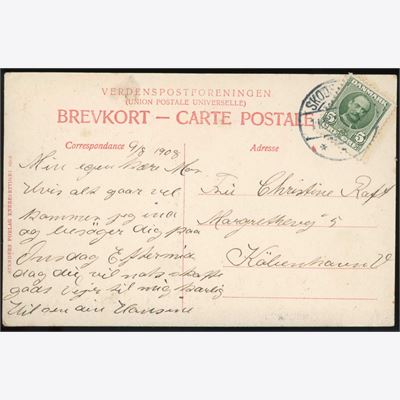 VERDENSPOSTFORENINGEN
(UNION POSTALE UNIVERSELLE)
BREVKORT — CARTE POSTALE
SKOJ
DANMARK
5 5
Correspondance
Adresse
9/8 1908
Min egen kære Mor
Hvis alt gaar vel
kommer jeg ind
og besøger dig paa
Onsdag Eftermid
dag du vil nok
gaas til mig
Hilsen din
Fru Christine Raft
Margrethevej 5
København V